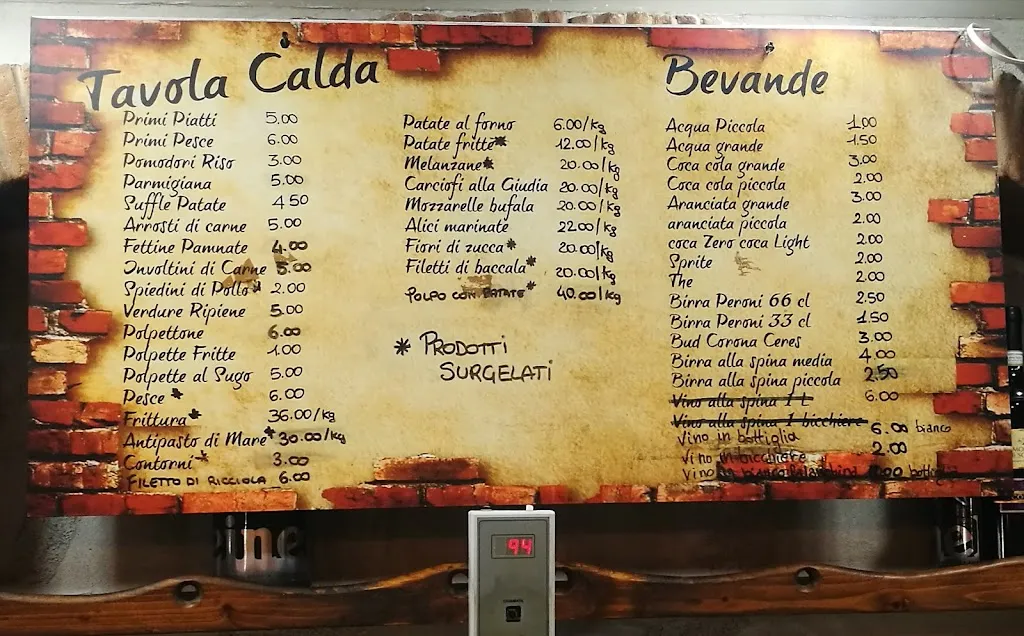 Tavola Calda
Primi Piatti 5.00
Primi Pesce 6.00
Pomodori Riso 3.00
Parmigiana 5.00
Suffle Patate 4 50
Arrosti di carne 5.00
Fettine Pamnate 4.00
Involtini di Carne 5.00
Spiedini di Pollo* 2.00
Verdure Ripiene 5.00
Polpettone 6.00
Polpette Fritte 1.00
Polpette al Sugo 5.00
Pesce * 6.00
Frittura* 36.00/kg
Antipasto di Mare* 30.00/kg
Contorni* 3.00
FILETTO DI RICCIOLA 6.00
Patate al forno 6.00/kg
Patate fritte* 12.00/kg
Melanzane* 20.00/kg
Carciofi alla Giudia 20.00/kg
Mozzarelle bufala 20.00/kg
Alici marinate 22.00/kg
Fiori di zucca* 20.00/kg
Filetti di baccala* 20.00/kg
POLPO CON PATATE* 40.00/kg
* PRODOTTI
SURGELATI
Bevande
Acqua Piccola 1.00
Acqua grande 1.50
Coca cola grande 3.00
Coca cola piccola 2.00
Aranciata grande 3.00
aranciata piccola 2.00
coca Zero coca Light 2.00
Sprite 2.00
The 2.00
Birra Peroni 66 cl 2.50
Birra Peroni 33 cl 1.50
Bud Corona Ceres 3.00
Birra alla spina media 4.00
Birra alla spina piccola 2.50
Vino alla spina 1 L 6.00
Vino alla spina 1 bicchiere
Vino in bottiglia 6.00 bianco
Vino in bicchiere 2.00
Vino in bianco
94